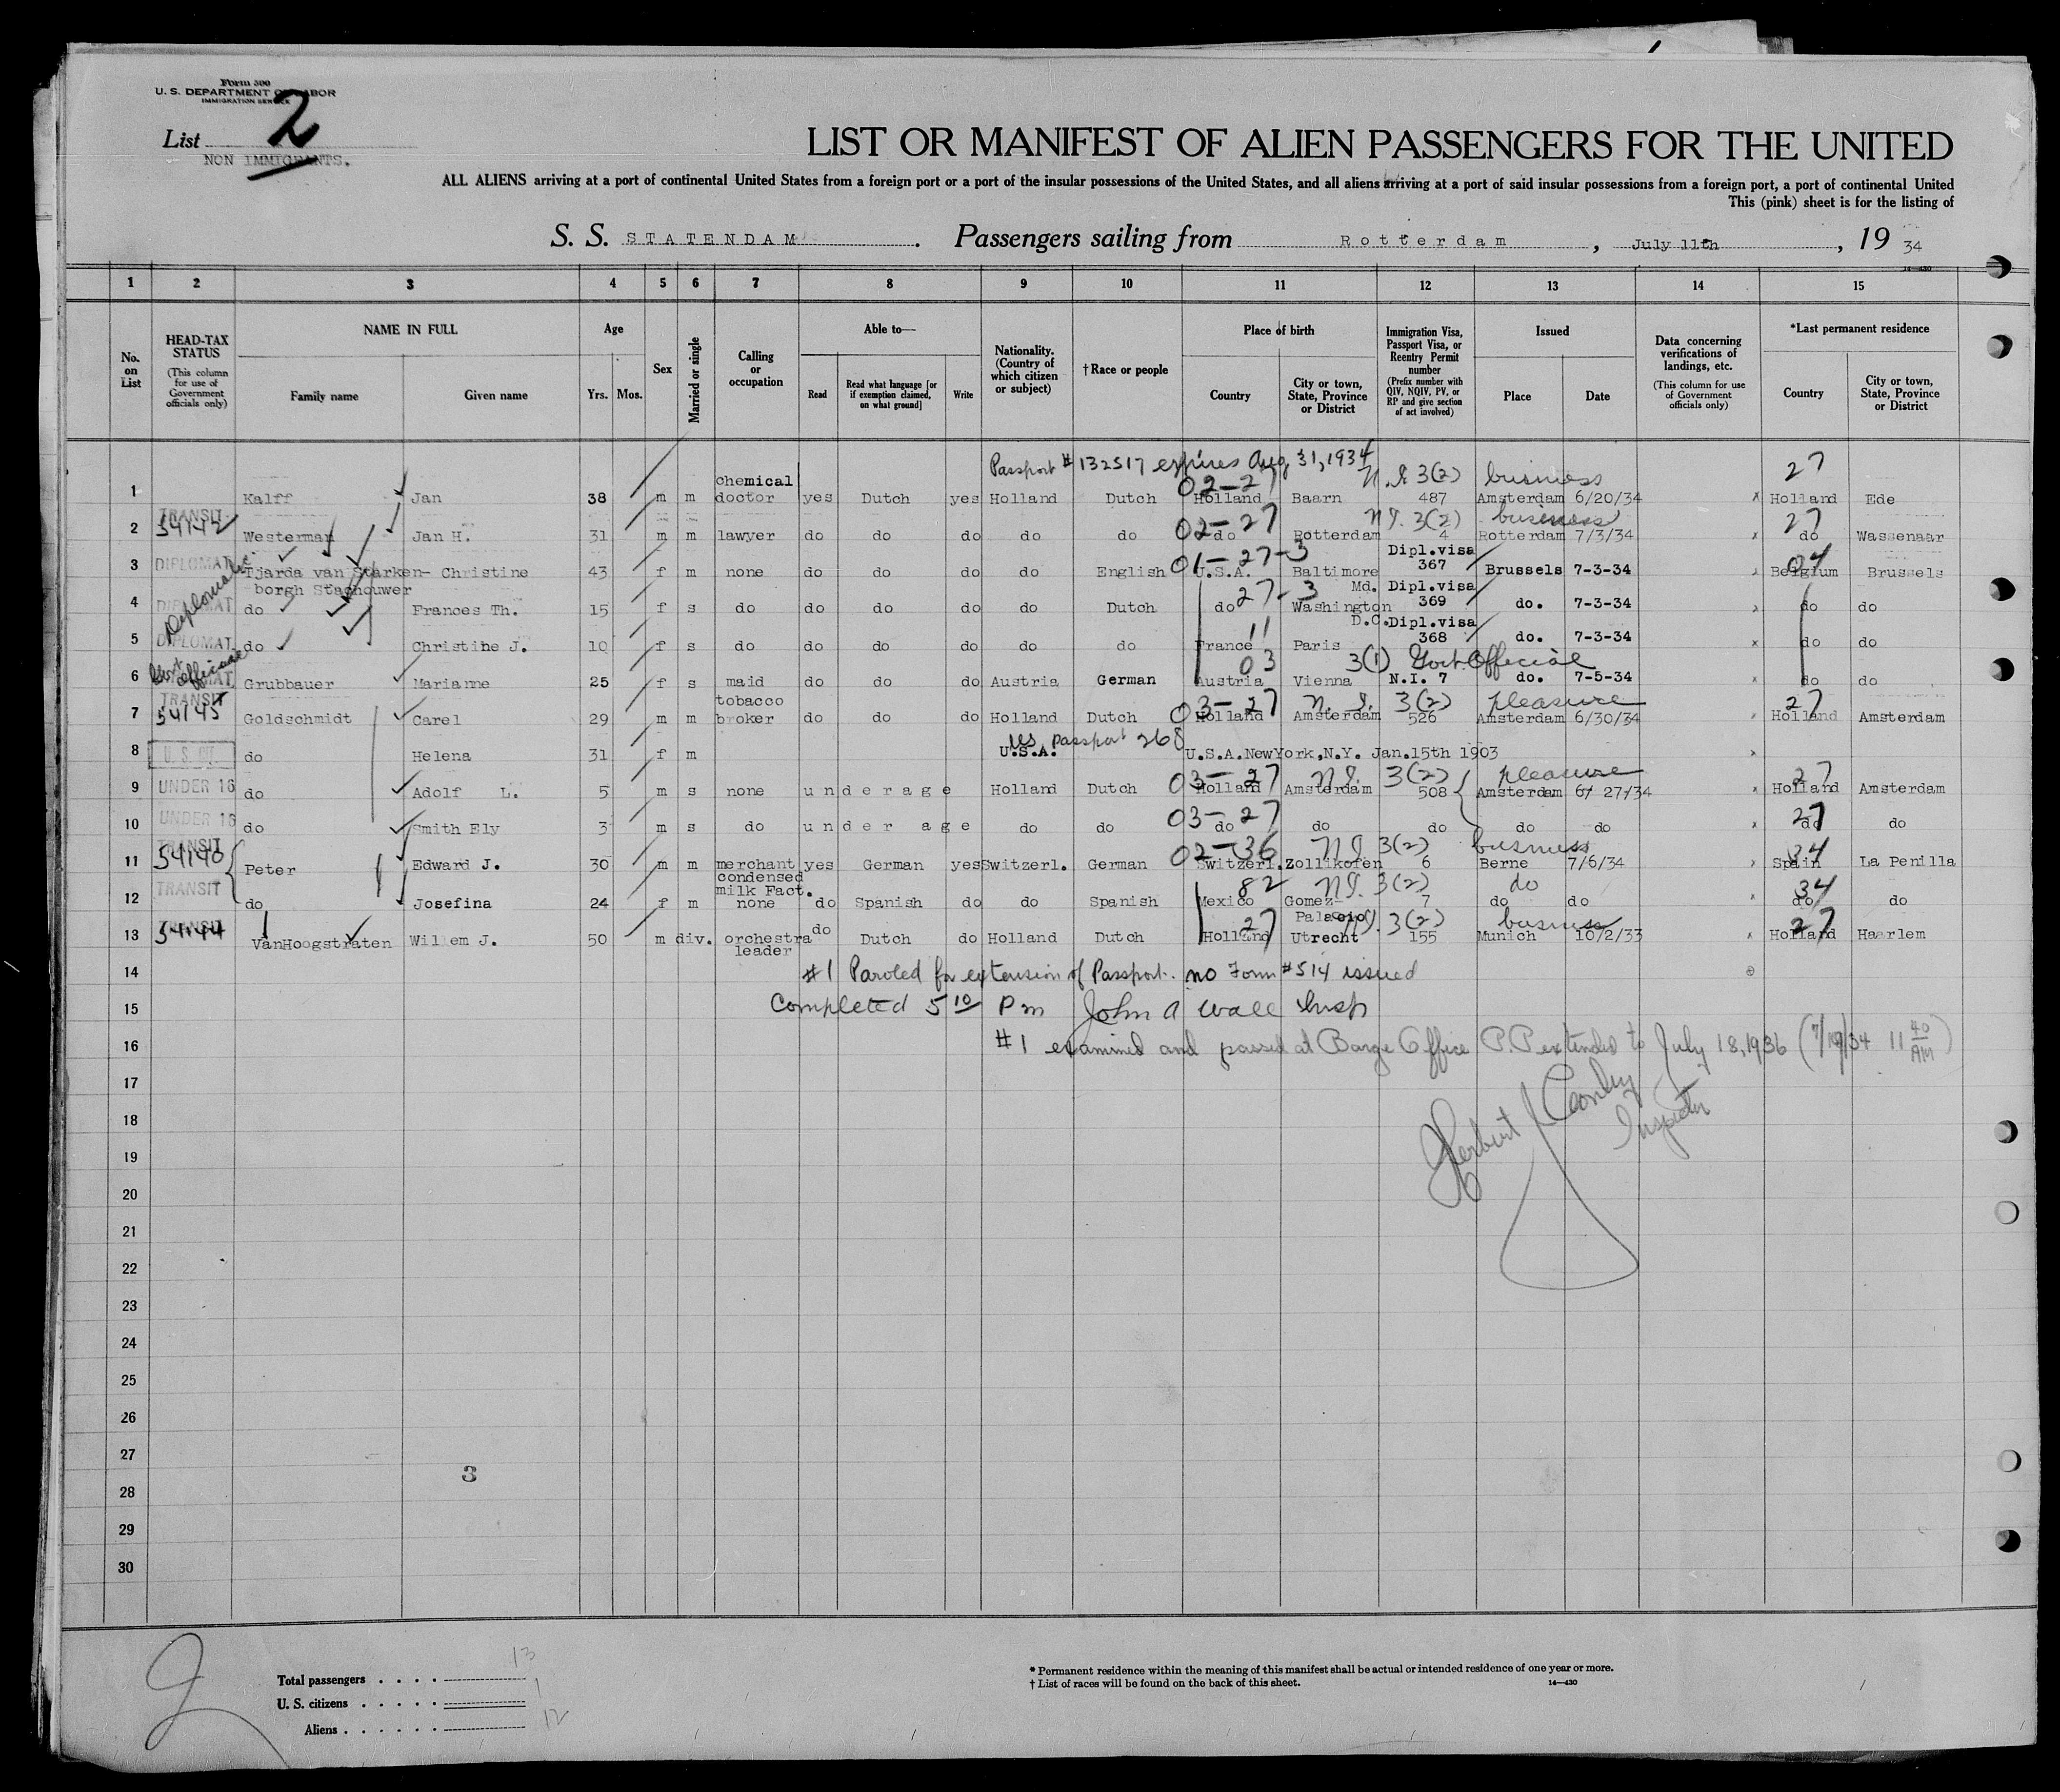 Form 500
U. S. DEPARTMENT OF LABOR
IMMIGRATION SERVICE
List 2
NON IMMIGRANTS.
LIST OR MANIFEST OF ALIEN PASSENGERS FOR THE UNITED
ALL ALIENS arriving at a port of continental United States from a foreign port or a port of the insular possessions of the United States, and all aliens arriving at a port of said insular possessions from a foreign port, a port of continental United
This (pink) sheet is for the listing of
S. S. STATENDAM . Passengers sailing from Rotterdam , July 11th , 19 34
14—430
1 2 3 4 5 6 7 8 9 10 11 12 13 14 15
No. on List
HEAD-TAX STATUS (This column for use of Government officials only)
NAME IN FULL Family name Given name
Age Yrs. Mos.
Sex
Married or single
Calling or occupation
Able to— Read Read what language [or if exemption claimed, on what ground] Write
Nationality. (Country of which citizen or subject)
†Race or people
Place of birth Country City or town, State, Province or District
Immigration Visa, Passport Visa, or Reentry Permit number (Prefix number with QIV, NQIV, PV, or RP and give section of act involved)
Issued Place Date
Data concerning verifications of landings, etc. (This column for use of Government officials only)
*Last permanent residence Country City or town, State, Province or District
Passport # 132517 expires Aug 31, 1934
02-27 N.I. 3(2) business 27
1 Kalff Jan 38 m m chemical doctor yes Dutch yes Holland Dutch Holland Baarn 487 Amsterdam 6/20/34 x Holland Ede
TRANSIT 54142 02-27 N.I. 3(2) business 27
2 Westerman Jan H. 31 m m lawyer do do do do do do Rotterdam 4 Rotterdam 7/3/34 x do Wassenaar
DIPLOMAT Diplomatic 01-27-3 04
3 Tjarda van Starken- Christine 43 f m none do do do do English U.S.A. Baltimore Dipl.visa 367 Brussels 7-3-34 x Belgium Brussels
borgh Stachouwer Md.
DIPLOMAT 27-3
4 do Frances Th. 15 f s do do do do do Dutch do Washington Dipl.visa 369 do. 7-3-34 x do do
D.C.
DIPLOMAT 11
5 do Christine J. 10 f s do do do do do do France Paris Dipl.visa 368 do. 7-3-34 x do do
Govt official 03 3(1) Govt Official
6 Grubbauer Marianne 25 f s maid do do do Austria German Austria Vienna N.I. 7 do. 7-5-34 x do do
TRANSIT 54145 03-27 N.I. 3(2) pleasure 27
7 Goldschmidt Carel 29 m m tobacco broker do do do Holland Dutch Holland Amsterdam 526 Amsterdam 6/30/34 x Holland Amsterdam
US Passport 268
8 do Helena 31 f m U.S.A. U.S.A.NewYork,N.Y. Jan.15th 1903 x
UNDER 16 03-27 N.I. 3(2) pleasure 27
9 do Adolf L. 5 m s none underage Holland Dutch Holland Amsterdam 508 Amsterdam 6/27/34 x Holland Amsterdam
UNDER 16 03-27 27
10 do Smith Ely 3 m s do under age do do do do do do do x do do
TRANSIT 54140 02-36 N.I. 3(2) business 34
11 Peter Edward J. 30 m m merchant condensed milk Fact. yes German yes Switzerl. German Switzerl. Zollikofen 6 Berne 7/6/34 x Spain La Penilla
TRANSIT 82 N.I. 3(2) do 34
12 do Josefina 24 f m none do Spanish do do Spanish Mexico Gomez- Palacio 7 do do x do do
TRANSIT 54144 27 N.I. 3(2) business 27
13 VanHoogstraten Willem J. 50 m div. orchestra leader do Dutch do Holland Dutch Holland Utrecht 155 Munich 10/2/33 x Holland Haarlem
14 #1 Paroled for extension of Passport. no Form #514 issued
15 Completed 5 10 Pm John A Wall Insp
16 #1 examined and passed at Barge Office P.P extended to July 18, 1936 (7/19/34 11 40 AM)
17
Herbert J Conley
Inspector
18
19
20
21
22
23
24
25
26
27
3
28
29
30
Total passengers . . . . 13
U. S. citizens . . . . . 1
Aliens . . . . . . 12
* Permanent residence within the meaning of this manifest shall be actual or intended residence of one year or more.
† List of races will be found on the back of this sheet. 14—430